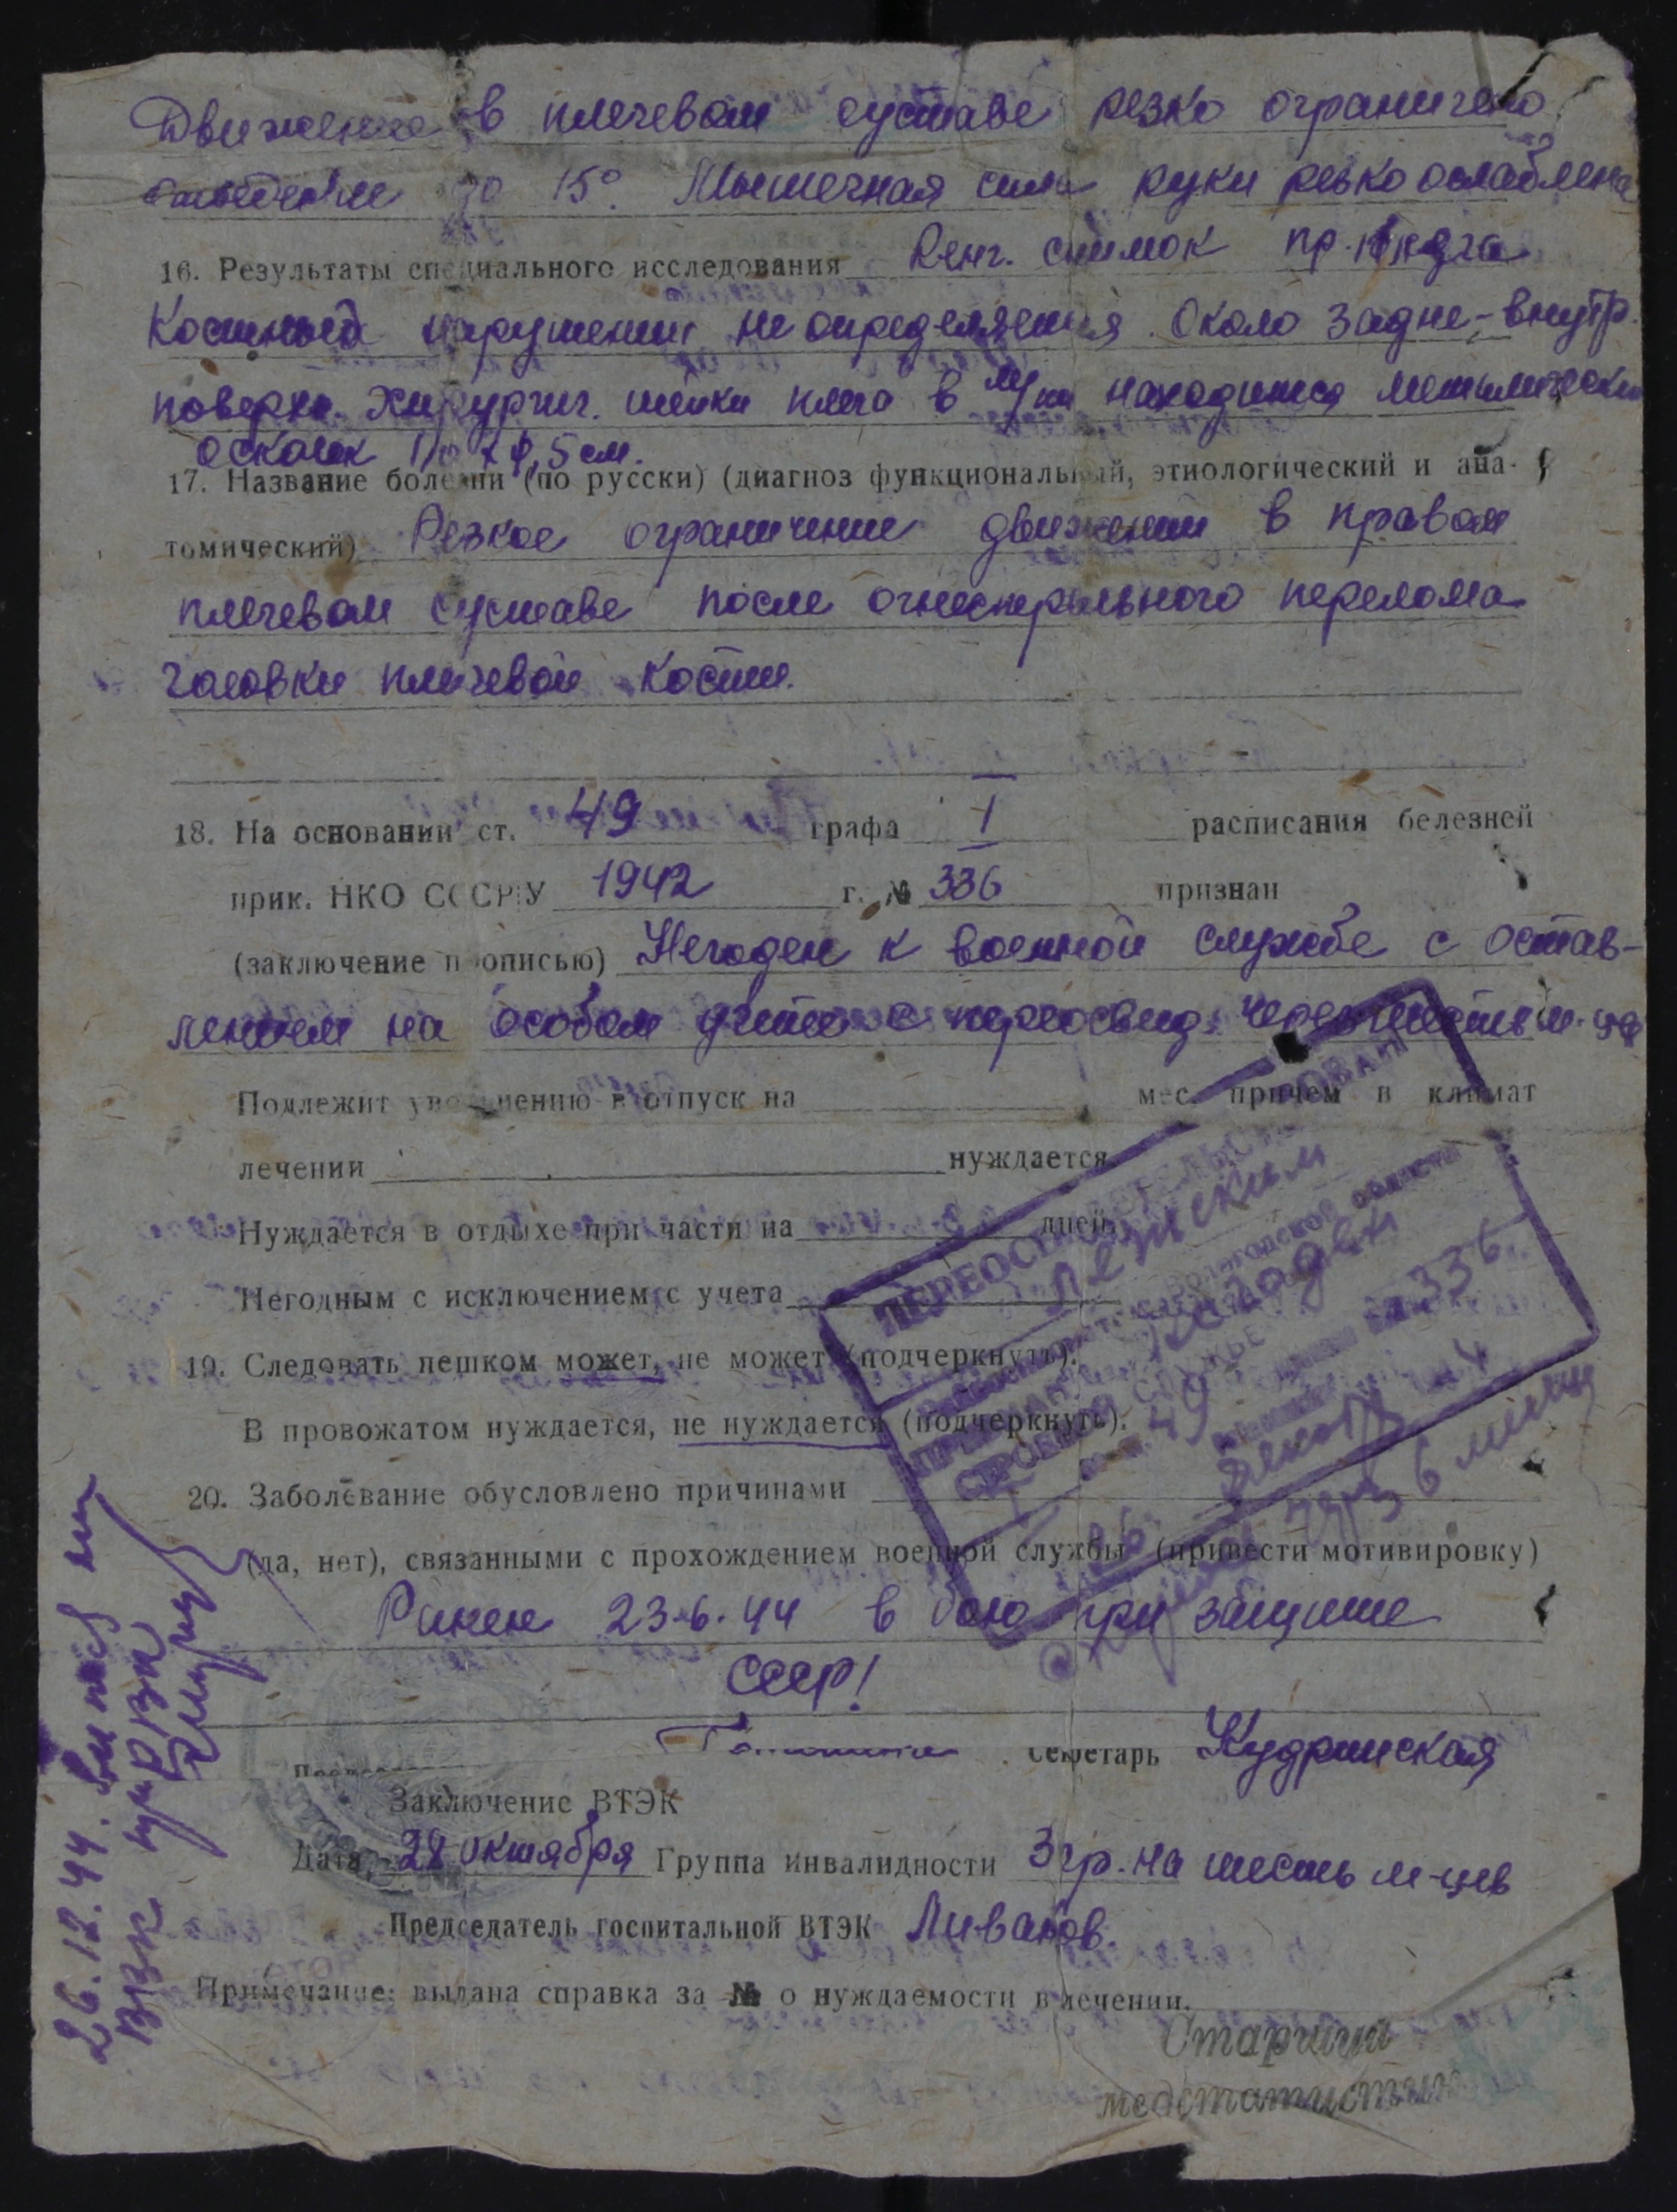 Движение в плечевом суставе резко ограничено
отведение до 15°. Мышечная сила руки резко ослаблена
16. Результаты специального исследования Рент. снимок пр. плеча
Костных нарушений не определяется. Около задне-внутр.
поверхн. хирургич. шейки плеча в м/тк находится металлический
осколок
17. Название болезни (по русски) (диагноз функциональный, этиологический и ана-
томический) Резкое ограничение движений в правом
плечевом суставе после огнестрельного перелома
головки плечевой кости.
18. На основании ст. 49 графа I расписания белезней
прик. НКО СССР У 1942 г. № 336 признан
(заключение прописью) Негоден к военной службе с остав-
лением на особом учете с переосвид. через шесть м-цев
Подлежит увольнению в отпуск на мес. причем в климат
лечении нуждается
Нуждается в отдыхе при части на дней.
Негодным с исключением с учета
19. Следовать пешком может, не может (подчеркнуть).
В провожатом нуждается, не нуждается (подчеркнуть).
20. Заболевание обусловлено причинами
(да, нет), связанными с прохождением военной службы (привести мотивировку)
Ранен 23-6-44 в бою при защите
СССР!
Секретарь Кудринская
Заключение ВТЭК
Дата 28 октября Группа инвалидности 3 гр. на шесть м-цев
Председатель госпитальной ВТЭК Ливанов.
Примечание: выдана справка за № о нуждаемости в лечении.
Старший
медстатистик
ПЕРЕОСВИДЕТЕЛЬСТВОВАН
Вологодской области
негоден
СТРОЕВОЙ СЛУЖБЕ
49
336
через 6 месяц
26.12.44.
ВВК